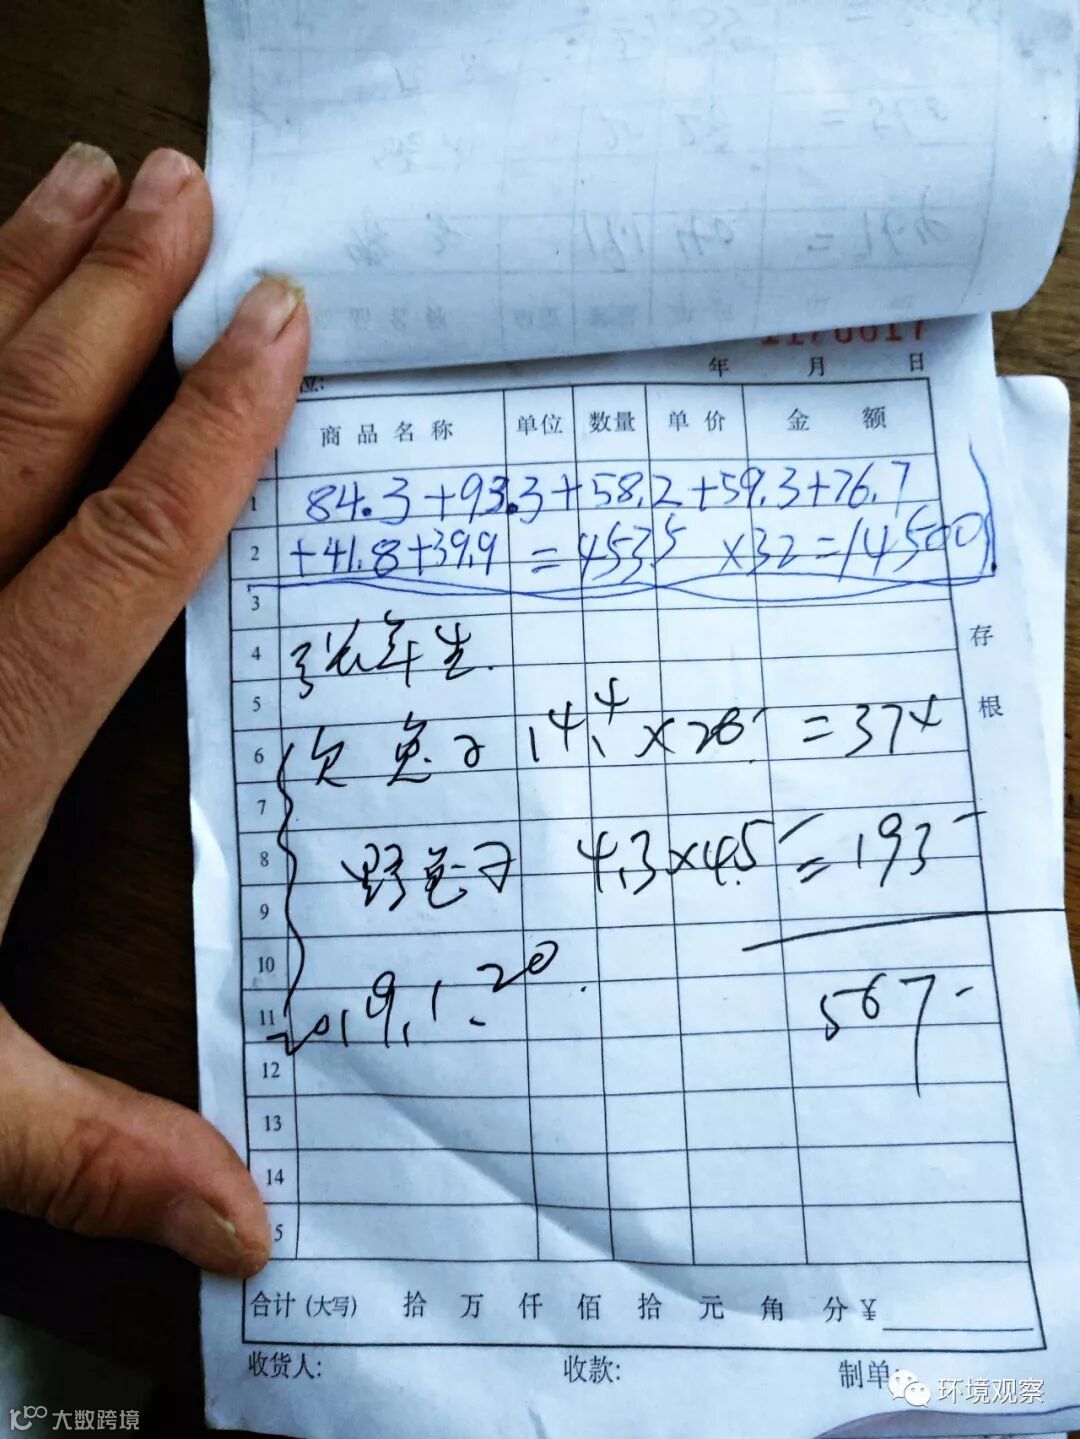 1170017
位:
年 月 日
商品名称 单位 数量 单价 金额
1 84.3+93.3+58.2+59.3+76.7
2 +41.8+39.9=453.5×32=14500
3
4 张年生.
5
6 欠兔子 14.4×26=374
7
8 野兔子 4.3×45=193-
9
10
11 2019.1.20
567-
12
13
14
5
存根
合计(大写) 拾 万 仟 佰 拾 元 角 分¥
收货人: 收款: 制单:
环境观察
大数跨境